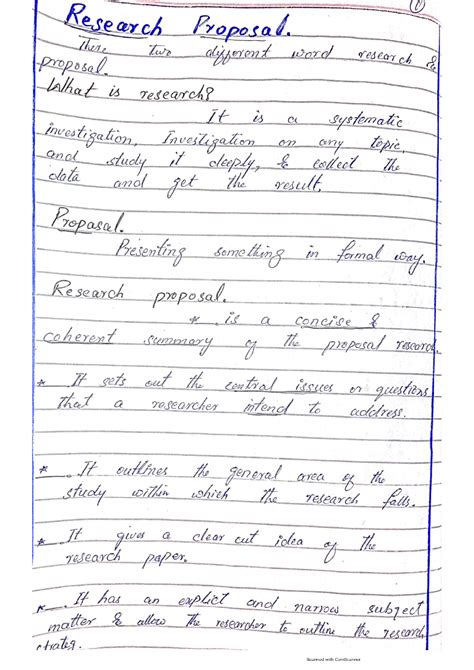 (1)
Research Proposal.
There two different word research &
proposal.
What is research?
It is a systematic
investigation, Investigation on any topic,
and study it deeply, & collect the
data and get the result.
Proposal.
Presenting something in formal way.
Research proposal.
* . is a concise &
coherent summary of the proposal research
* . It sets out the central issues or questions
that a researcher intend to address.
* . It outlines the general area of the
study within which the research falls.
* It gives a clear cut idea of the
research paper.
* . It has an explict and narrow subject
matter & allow the researcher to outline the research
Scanned with CamScanner